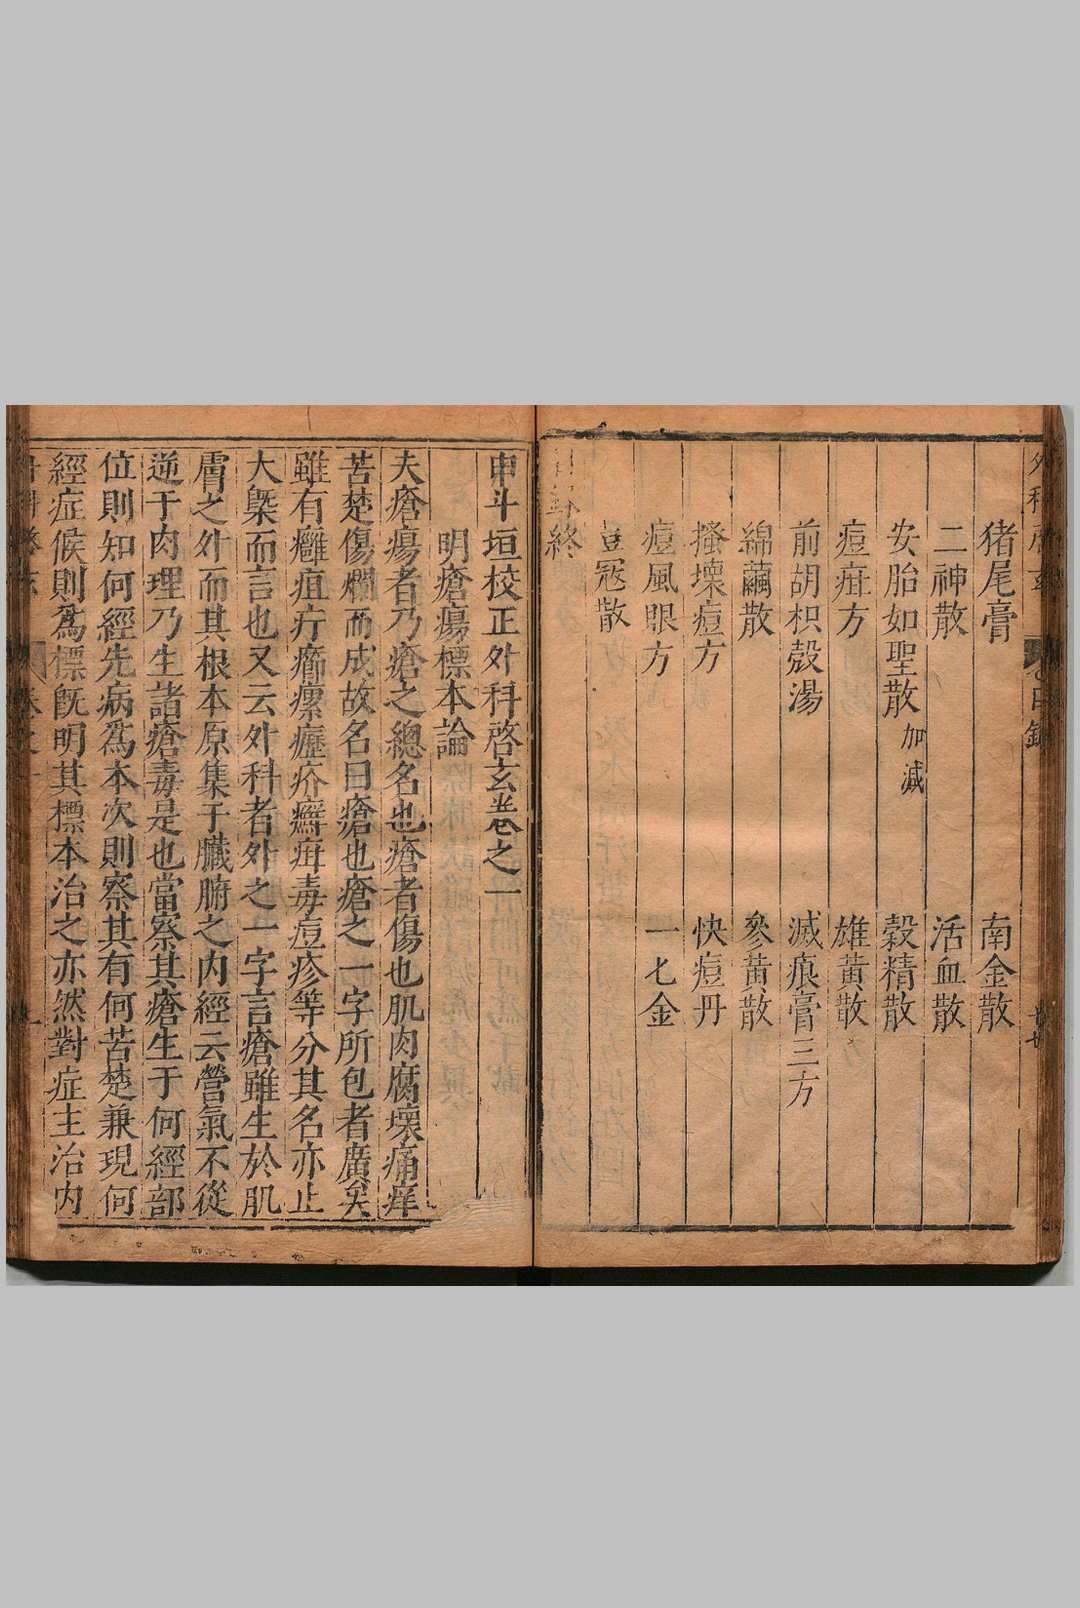 猪尾膏 南金散
二神散 活血散
安胎如聖散加減 穀精散
痘疳方 雄黃散
前胡枳殼湯 滅痕膏三方
綿繭散 參黃散
搔壞痘方 快痘丹
痘風眼方 一七金
豆寇散
終
申斗垣校正外科啓玄卷之一
明瘡瘍標本論
夫瘡瘍者乃瘡之總名也瘡者傷也肌肉腐壞痛痒
苦楚傷爛而成故名曰瘡也瘡之一字所包者廣矣
雖有癰疽疔癤瘰癧疥癬疳毒痘疹等分其名亦止
大槩而言也又云外科者外之一字言瘡雖生於肌
膚之外而其根本原集于臟腑之内經云營氣不從
逆于肉理乃生諸瘡毒是也當察其瘡生于何經部
位則知何經先病爲本次則察其有何苦楚兼現何
經症候則爲標旣明其標本治之亦然對症主治内